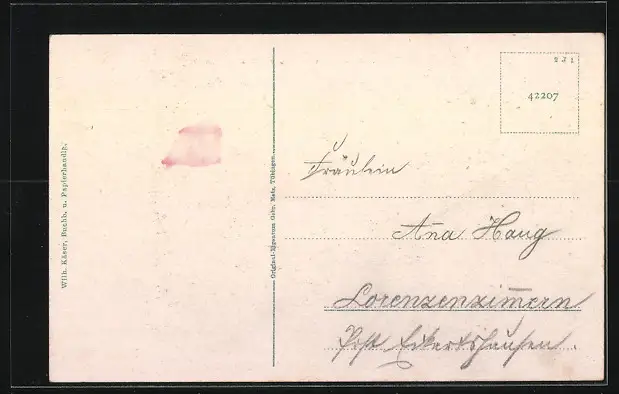 Wilh. Käser, Buchh. u. Papierhandlg.
Original-Eigentum Gebr. Metz, Tübingen
2 J 1
42207
Fräulein
Ana Haug
Lorenzenzimern
Post Eckertshausen.